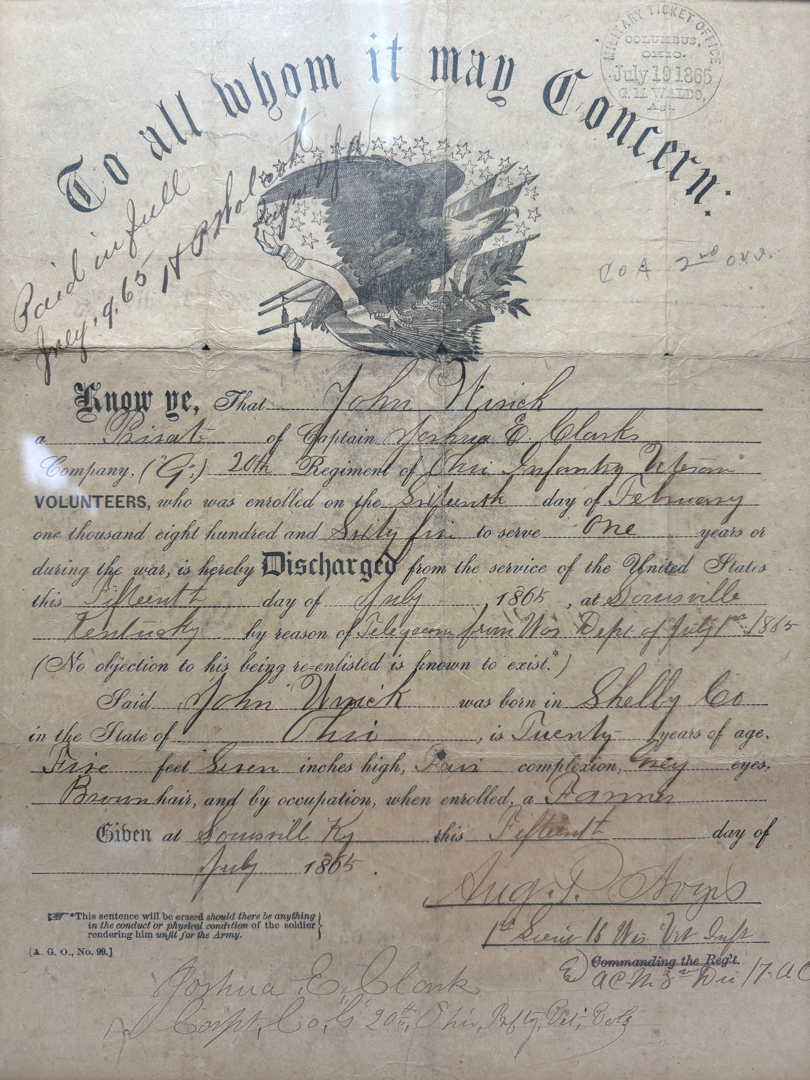 To all whom it may Concern:
MILITARY TICKET OFFICE
COLUMBUS,
OHIO.
July 19 1865
G. M. WALDO,
Agt.
Paid in full
July 19, 65
Co A 2nd
Know ye, That John Wirick
a Privat of Captain Joshua E. Clarks
Company, ("G.") 20th Regiment of Ohio Infantry Veteran
VOLUNTEERS, who was enrolled on the Sixteenth day of February
one thousand eight hundred and Sixty five to serve One years or
during the war, is hereby Discharged from the service of the United States
this Fifteenth day of July 1865, at Louisville
Kentucky by reason of Telegram from War Dept of July 1st 1865
(No objection to his being re-enlisted is known to exist.*)
Said John Wirick was born in Shelby Co
in the State of Ohio, is Twenty years of age,
Five feet Seven inches high, Fair complexion, Grey eyes,
Brown hair, and by occupation, when enrolled, a Farmer
Given at Louisvill Ky this Fifteenth day of
July 1865.
Aug. T.
1st Lieut 18 Wis Vet Inft
*This sentence will be erased should there be anything
in the conduct or physical condition of the soldier
rendering him unfit for the Army.
[A. G. O., No. 99.]
Commanding the Reg't.
A C M 3rd Div 17 A C
Joshua E. Clark
Capt, Co, G 20th, Ohio, Infty, Vet, Vols